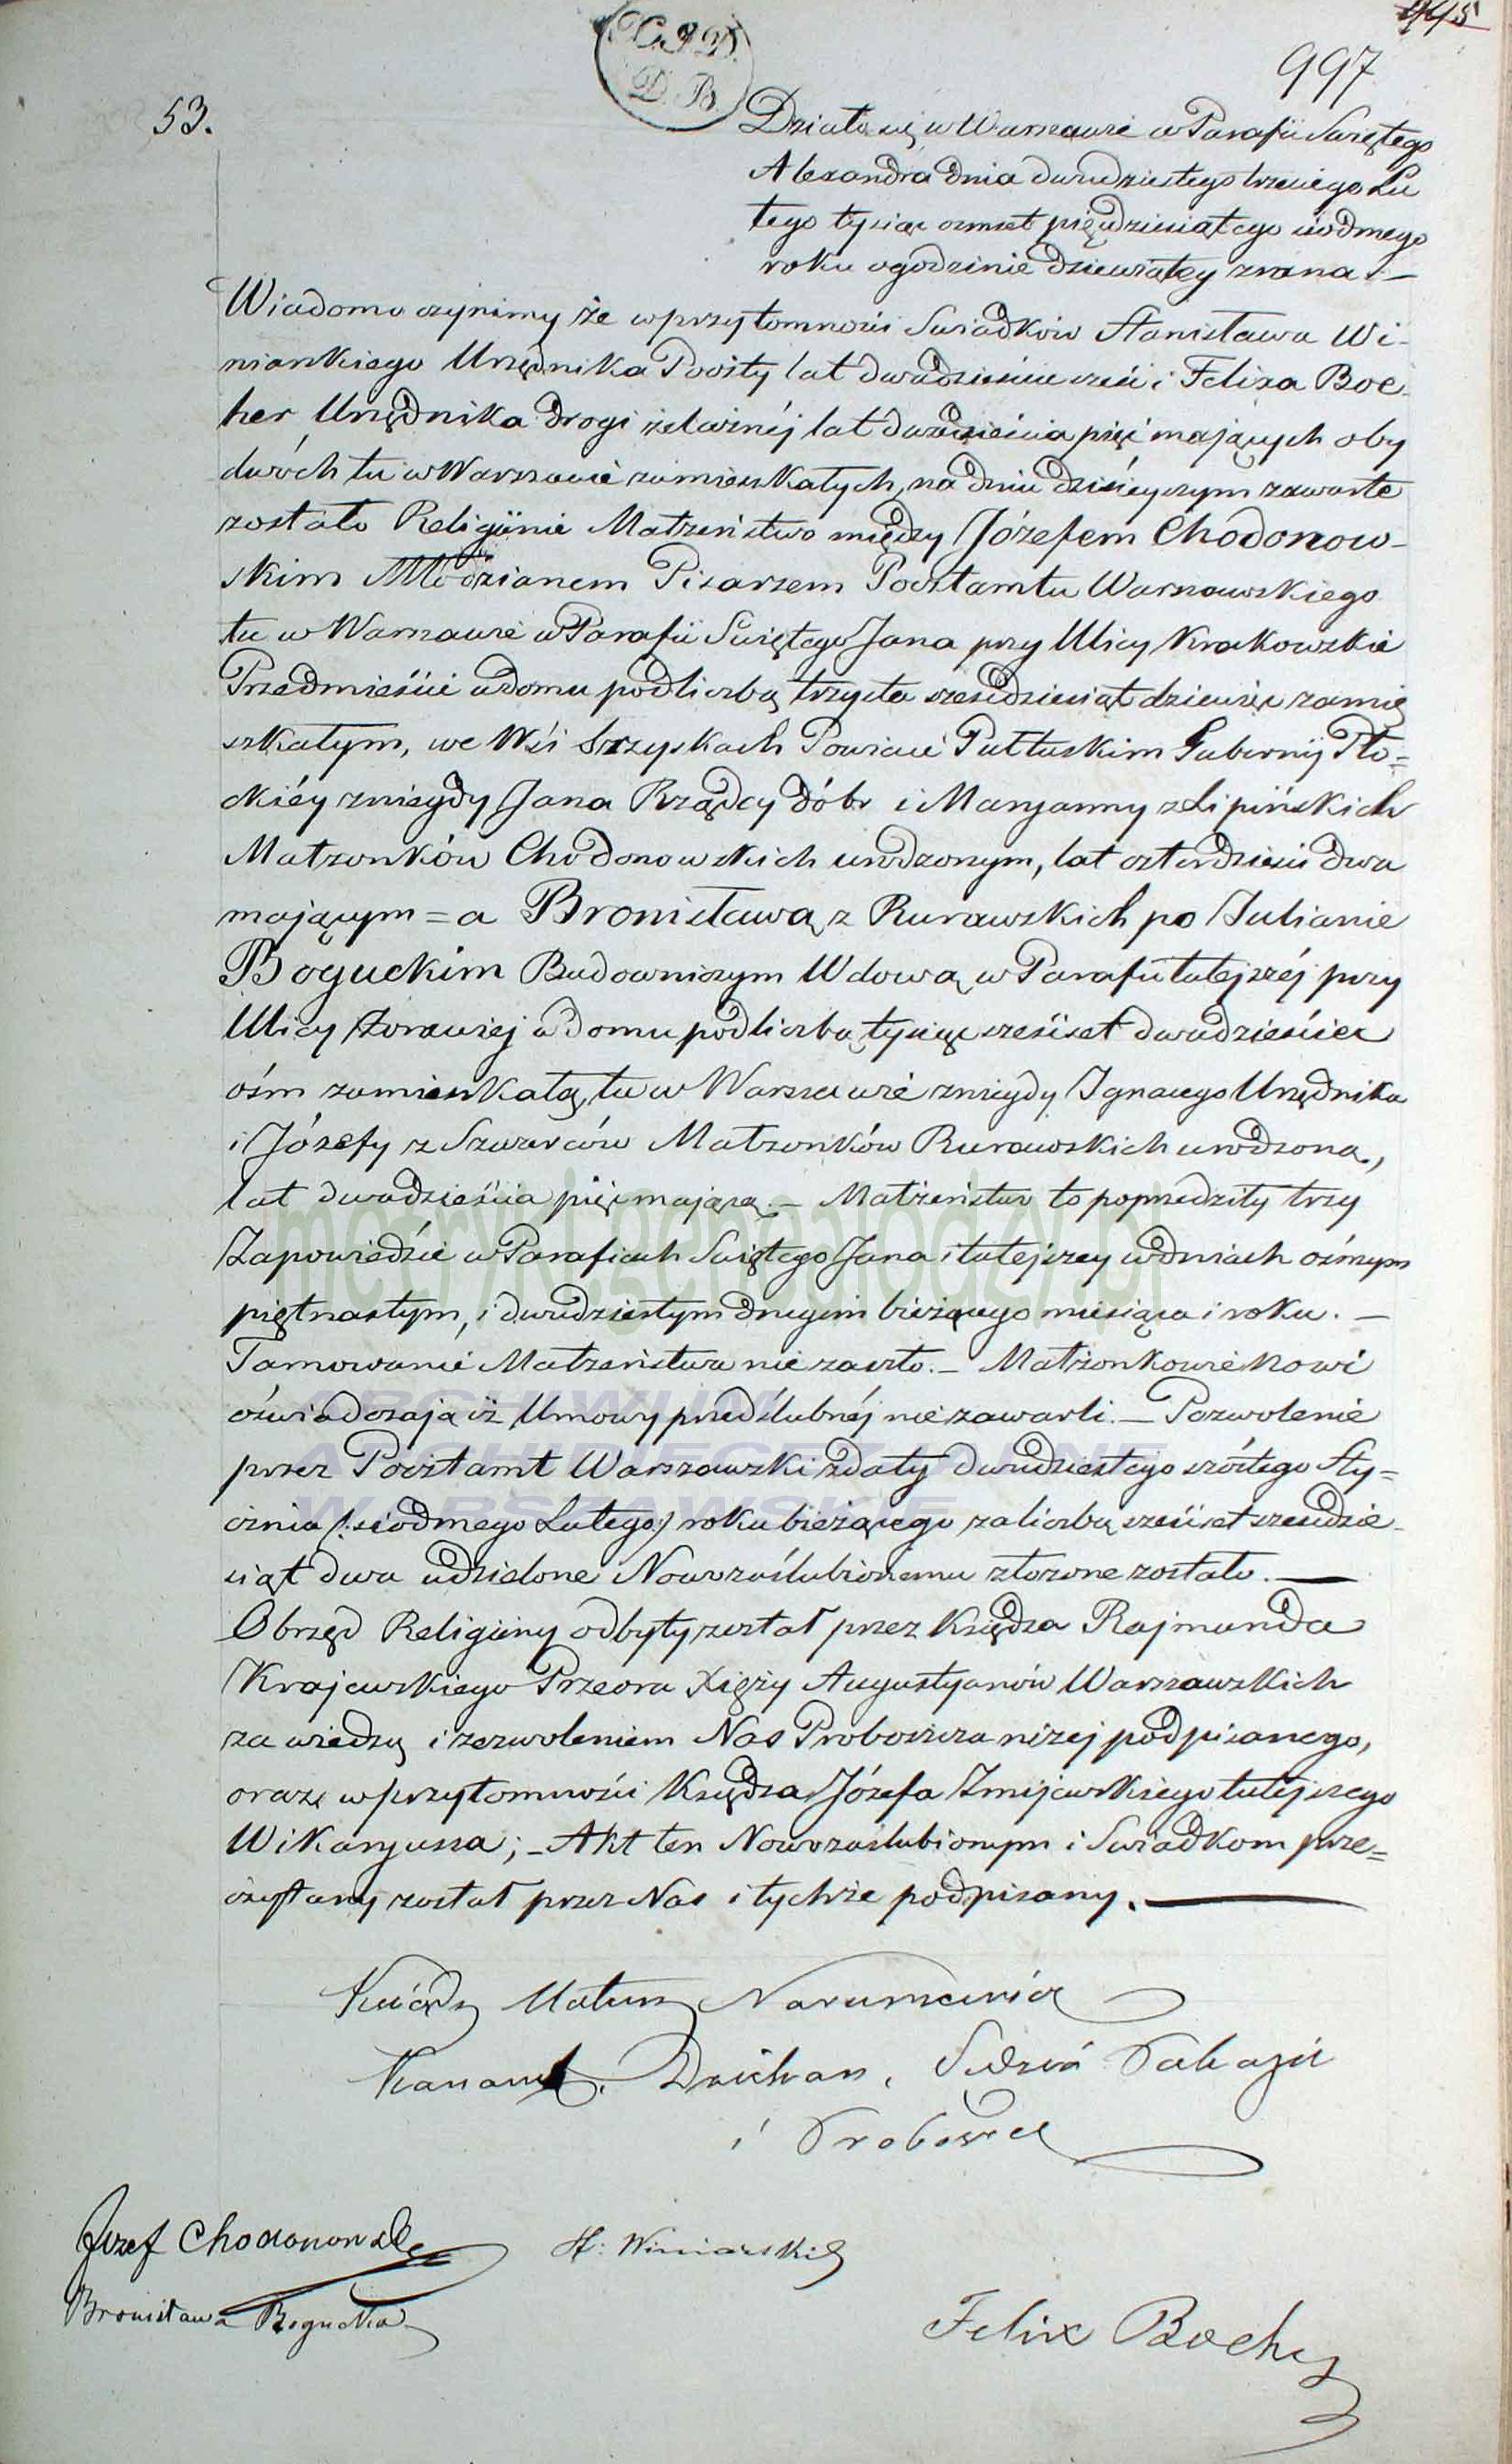 997
53.
Działo się w Warszawie w Parafii Świętego
Alexandra dnia dwudziestego trzeciego Lu
tego tysiąc ośmset pięćdziesiątego siódmego
roku o godzinie dziewiątey zrana. —
Wiadomo czynimy że w przytomności Świadków Stanisława Wi-
niarskiego Urzędnika Poczty lat dwadzieścia sześć i Felixa Boc
her Urzędnika drogi żelaznéj lat dwadzieścia pięć mających oby
dwóch tu w Warszawie zamieszkałych, na dniu dzisieyszym zawarte
zostało Religijnie Małżeństwo między Józefem Chodonow-
skim Młodzianem Pisarzem Pocztamtu Warszawskiego
tu w Warszawie w Parafii Świętego Jana przy Ulicy Krakowskie
Przedmieście w domu pod liczbą trzysta sześćdziesiąt dziewięć zamie
szkałym, we Wsi Powiecie Pułtuskim Gubernij Pło=
ckiéy z niegdy Jana Rządcy dóbr i Maryanny z Lipińskich
Małżonków Chodonowskich urodzonym, lat czterdzieści dwa
mającym = a Bronisławą z Rurawskich po Julianie
Boguckim Budowniczym Wdową, w Parafii tutejszéj przy
Ulicy Żórawiej w domu pod liczbą tysiąc sześćset dwadzieścia
ośm zamieszkałą, tu w Warszawie z niegdy Ignacego Urzędnika
i Józefy z Szwarców Małżonków Rurawskich urodzoną,
lat dwadzieścia pięć mającą. — Małżeństwo to poprzedziły trzy
Zapowiedzie w Parafiach Świętego Jana i tutejszey w dniach ósmym
piętnastym, i dwudziestym drugim bieżącego miesiąca i roku. —
Tamowanie Małżeństwa nie zaszło. — Małżonkowie Nowi
oświadczają iż Umowy przedślubnéj nie zawarli. — Pozwolenie
przez Pocztamt Warszawski z daty dwudziestego szóstego Sty=
cznia /:siódmego Lutego:/ roku bieżącego za liczbą sześćset sześćdzie-
siąt dwa udzielone Nowozaślubionemu złożone zostało. —
Obrzęd Religijny odbyty został przez Księdza Rajmunda
Krajewskiego Przeora Xięży Augustyanów Warszawskich
za wiedzą i zezwoleniem Nas Proboszcza niżej podpisanego,
oraz w przytomności Księdza Józefa Żmijewskiego tutejszego
Wikaryusza; — Akt ten Nowozaślubionym i Świadkom prze=
czytany został przez Nas i tychże podpisany. —
Ksiądz Mateusz
Kanon. Dziekan, Sędzia
i Proboszcz
Józef Chodonowski
St: Winiarski
Bronisława Bogucka
Felix Bocher
metryki.genealodzy.pl
ARCHIWUM
ARCHIDIECEZJALNE
WARSZAWSKIE